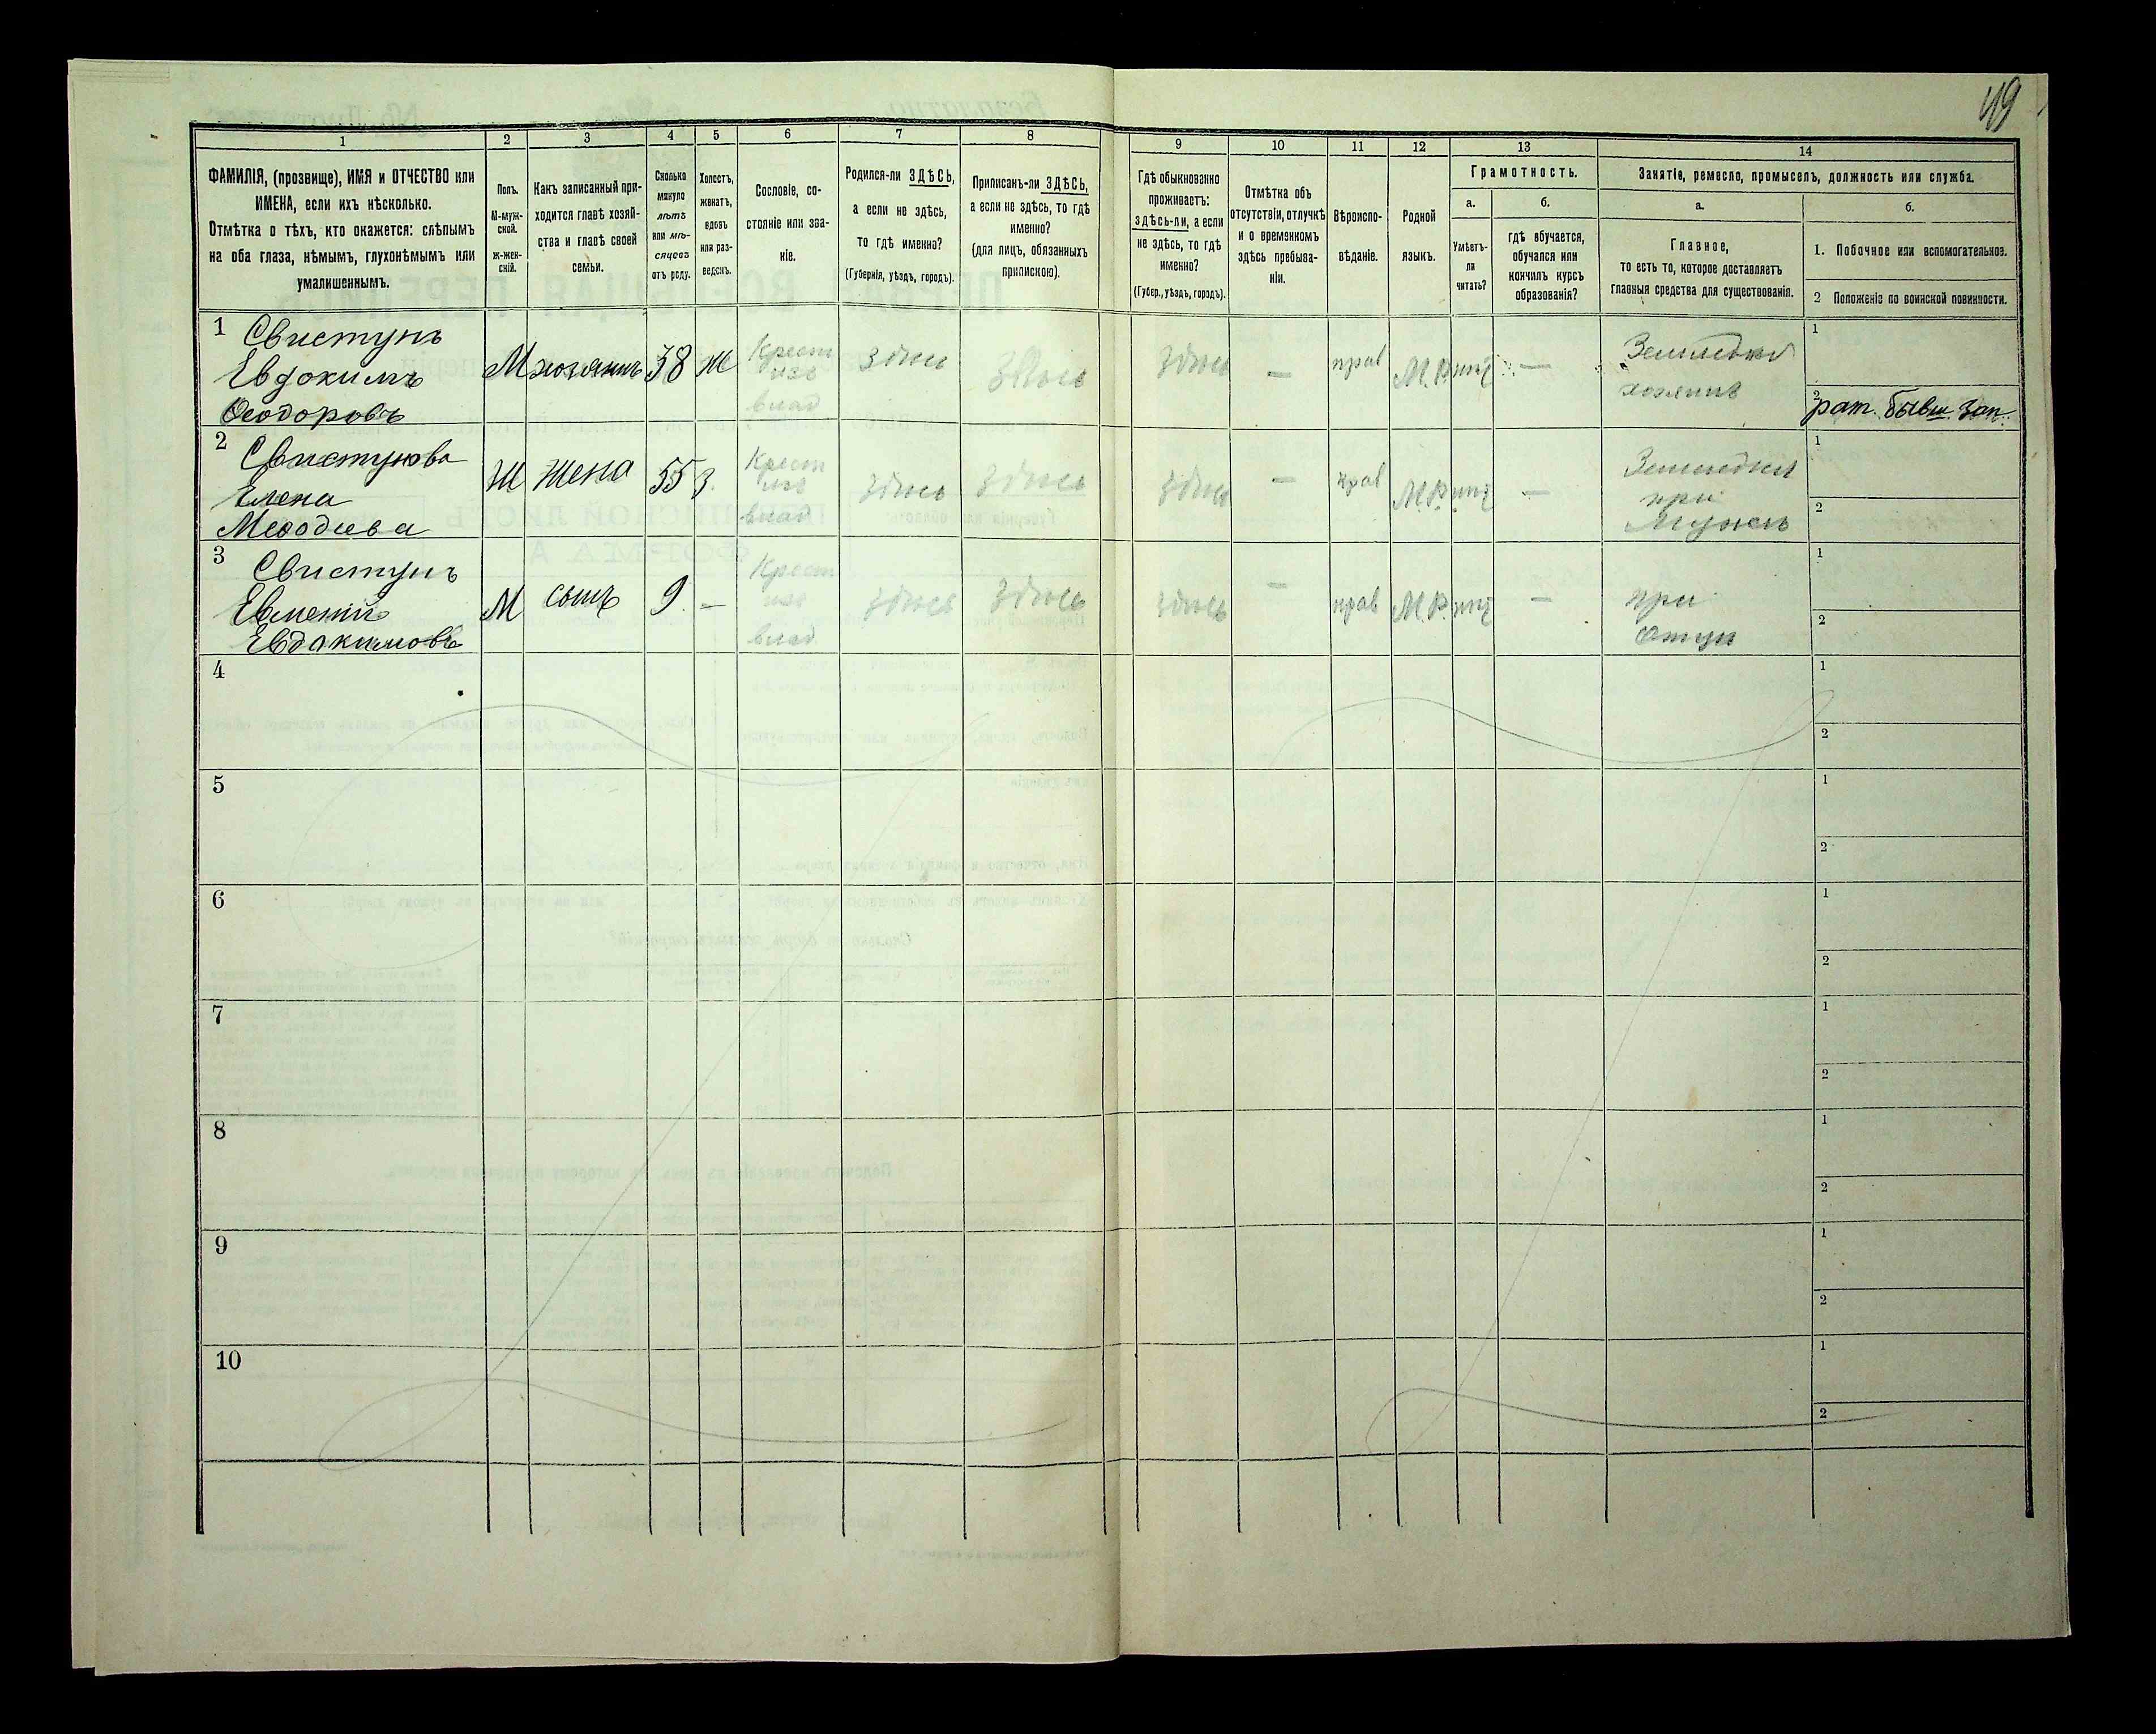 49
1 2 3 4 5 6 7 8 9 10 11 12 13 14
ФАМИЛІЯ, (прозвище), ИМЯ и ОТЧЕСТВО или
ИМЕНА, если ихъ нѣсколько.
Отмѣтка о тѣхъ, кто окажется: слѣпымъ
на оба глаза, нѣмымъ, глухонѣмымъ или
умалишеннымъ.
Полъ.
М-муж-
ской.
ж-жен-
скій.
Какъ записанный при-
ходится главѣ хозяй-
ства и главѣ своей
семьи.
Сколько
минуло
лѣтъ
или мѣ-
сяцевъ
отъ роду.
Холостъ,
женатъ,
вдовъ
или раз-
веденъ.
Сословіе, со-
стояніе или зва-
ніе.
Родился-ли ЗДѢСЬ,
а если не здѣсь,
то гдѣ именно?
(Губернія, уѣздъ, городъ).
Приписанъ-ли ЗДѢСЬ,
а если не здѣсь, то гдѣ
именно?
(для лицъ, обязанныхъ
припискою).
Гдѣ обыкновенно
проживаетъ:
здѣсь-ли, а если
не здѣсь, то гдѣ
именно?
(Губер., уѣздъ, городъ).
Отмѣтка объ
отсутствіи, отлучкѣ
и о временномъ
здѣсь пребыва-
ніи.
Вѣроиспо-
вѣданіе.
Родной
языкъ.
Грамотность.
а.
Умѣетъ-
ли
читать?
б.
гдѣ обучается,
обучался или
кончилъ курсъ
образованія?
Занятіе, ремесло, промыселъ, должность или служба.
а.
Главное,
то есть то, которое доставляетъ
главныя средства для существованія.
б.
1. Побочное или вспомогательное.
2 Положеніе по воинской повинности.
1 Свистунъ
Евдокимъ
Ѳеодоровъ
М хозяинъ 58 ж
Крест
изъ
влад
здѣсь здѣсь здѣсь — прав М.Р. нѣт —
Земледѣл
хозяинъ
1
2 рат. бывш. зап.
2 Свистунова
Елена
Меѳодіева
Ж жена 55 з.
Крест
изъ
влад
здѣсь здѣсь здѣсь — прав М.Р. нѣт —
Земледѣл
при
мужѣ
1
2
3 Свистунъ
Евменій
Евдокимовъ
М сынъ 9. —
Крест
изъ
влад
здѣсь здѣсь здѣсь — прав М.Р. нѣт —
при
отцѣ
1
2
4
1
2
5
1
2
6
1
2
7
1
2
8
1
2
9
1
2
10
1
2